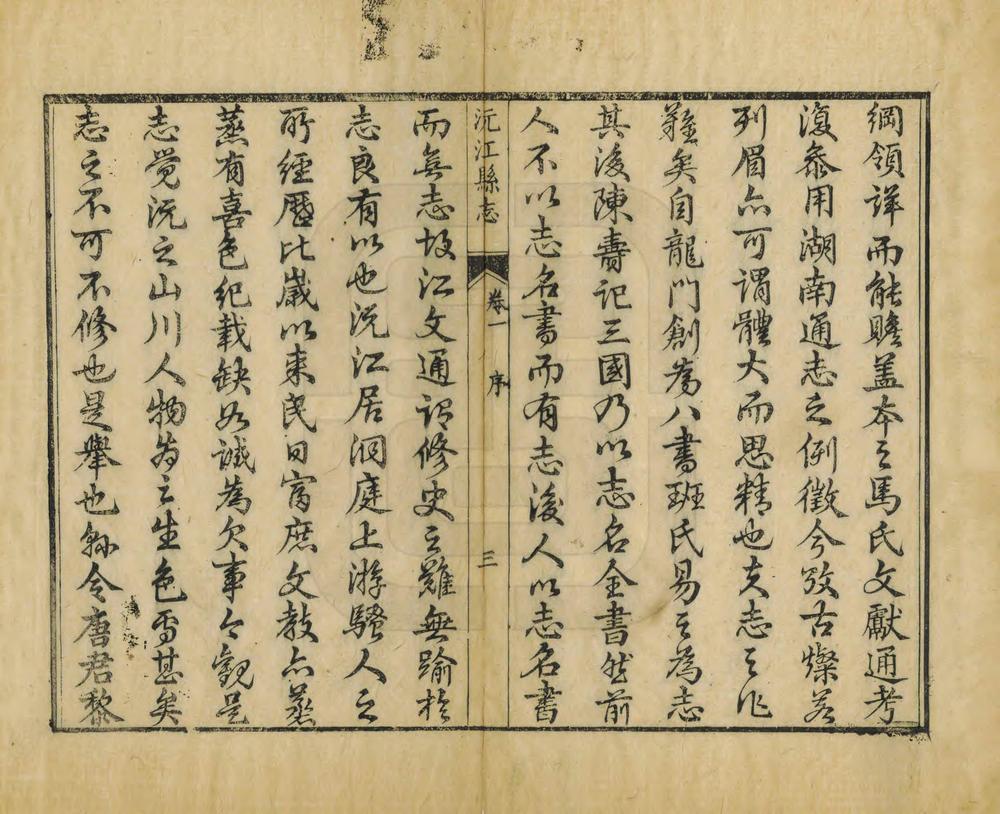 綱領詳而能贍蓋本之馬氏文獻通考
復參用湖南通志之例徵今攷古燦若
列眉亦可謂體大而思精也夫志之作
難矣自龍門創為八書班氏易之為志
其後陳壽記三國乃以志名全書然前
人不以志名書而有志後人以志名書
沅江縣志 卷一 序 三
而無志故江文通謂修史之難無踰於
志良有以也沅江居洞庭上游騷人之
所經歷比歲以來民日富庶文教亦蒸
蒸有喜色紀載缺如誠為欠事今觀是
志覺沅之山川人物為之生色焉甚矣
志之不可不修也是舉也縣令唐君黎